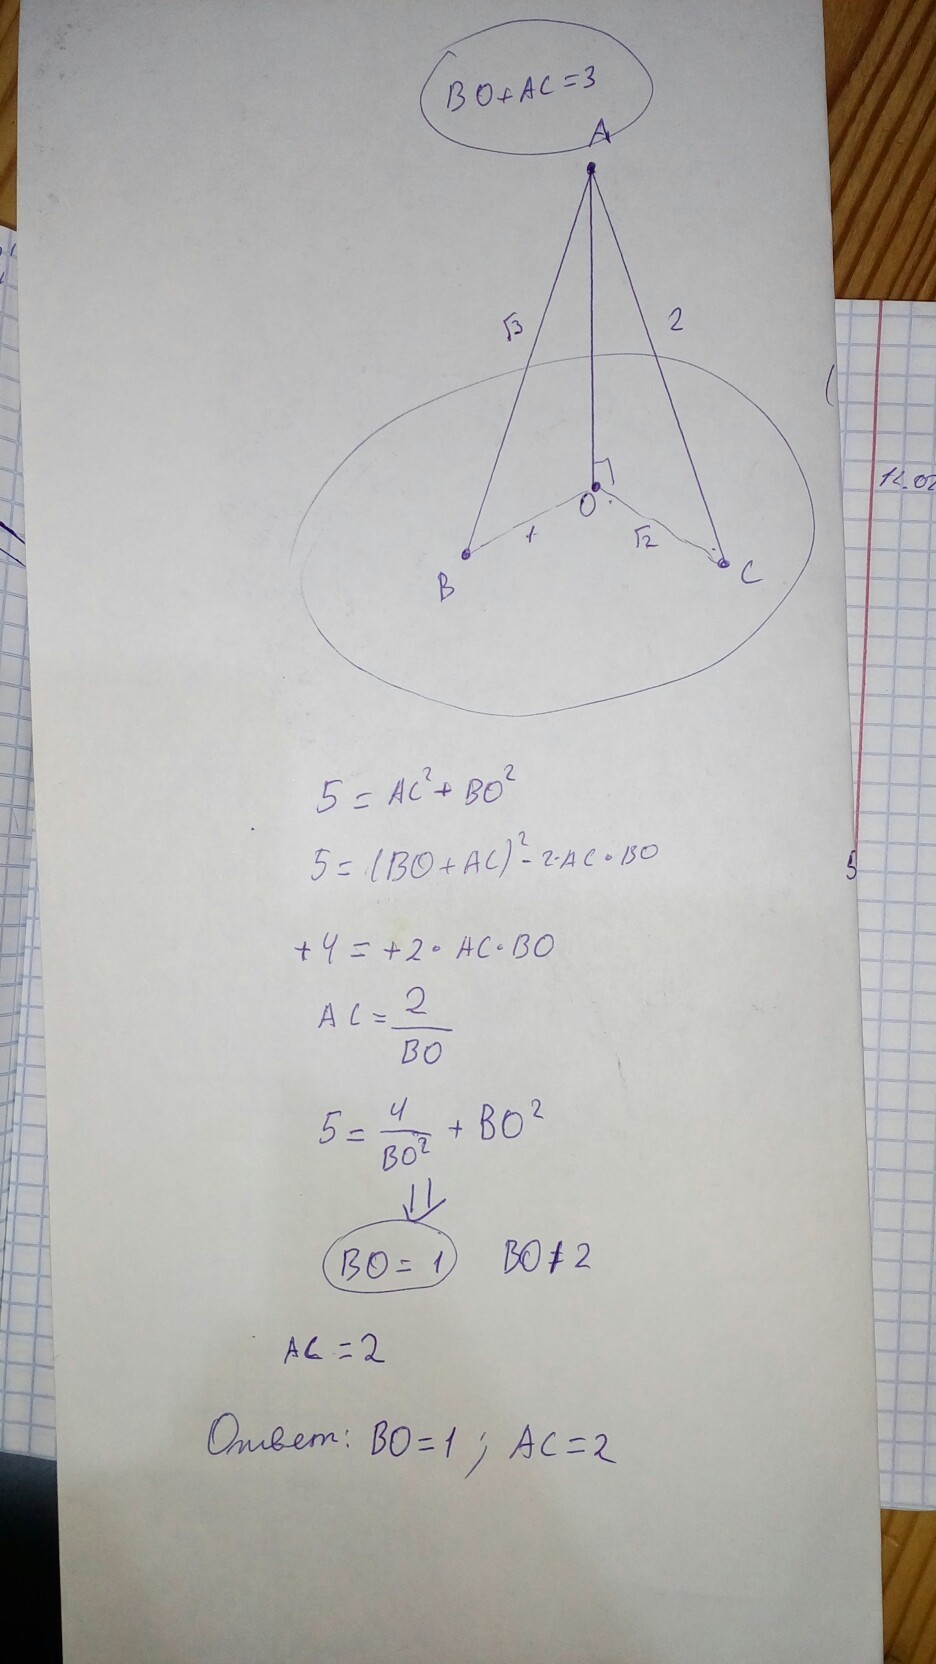 BO+AC=3
A
√3
2
O
1
√2
B
C
5 = AC² + BO²
5 = (BO+AC)² - 2·AC·BO
+4 = +2·AC·BO
AC = 2/BO
5 = 4/BO² + BO²
⇓
BO = 1 BO ≠ 2
AC = 2
Ответ: BO=1; AC=2
5